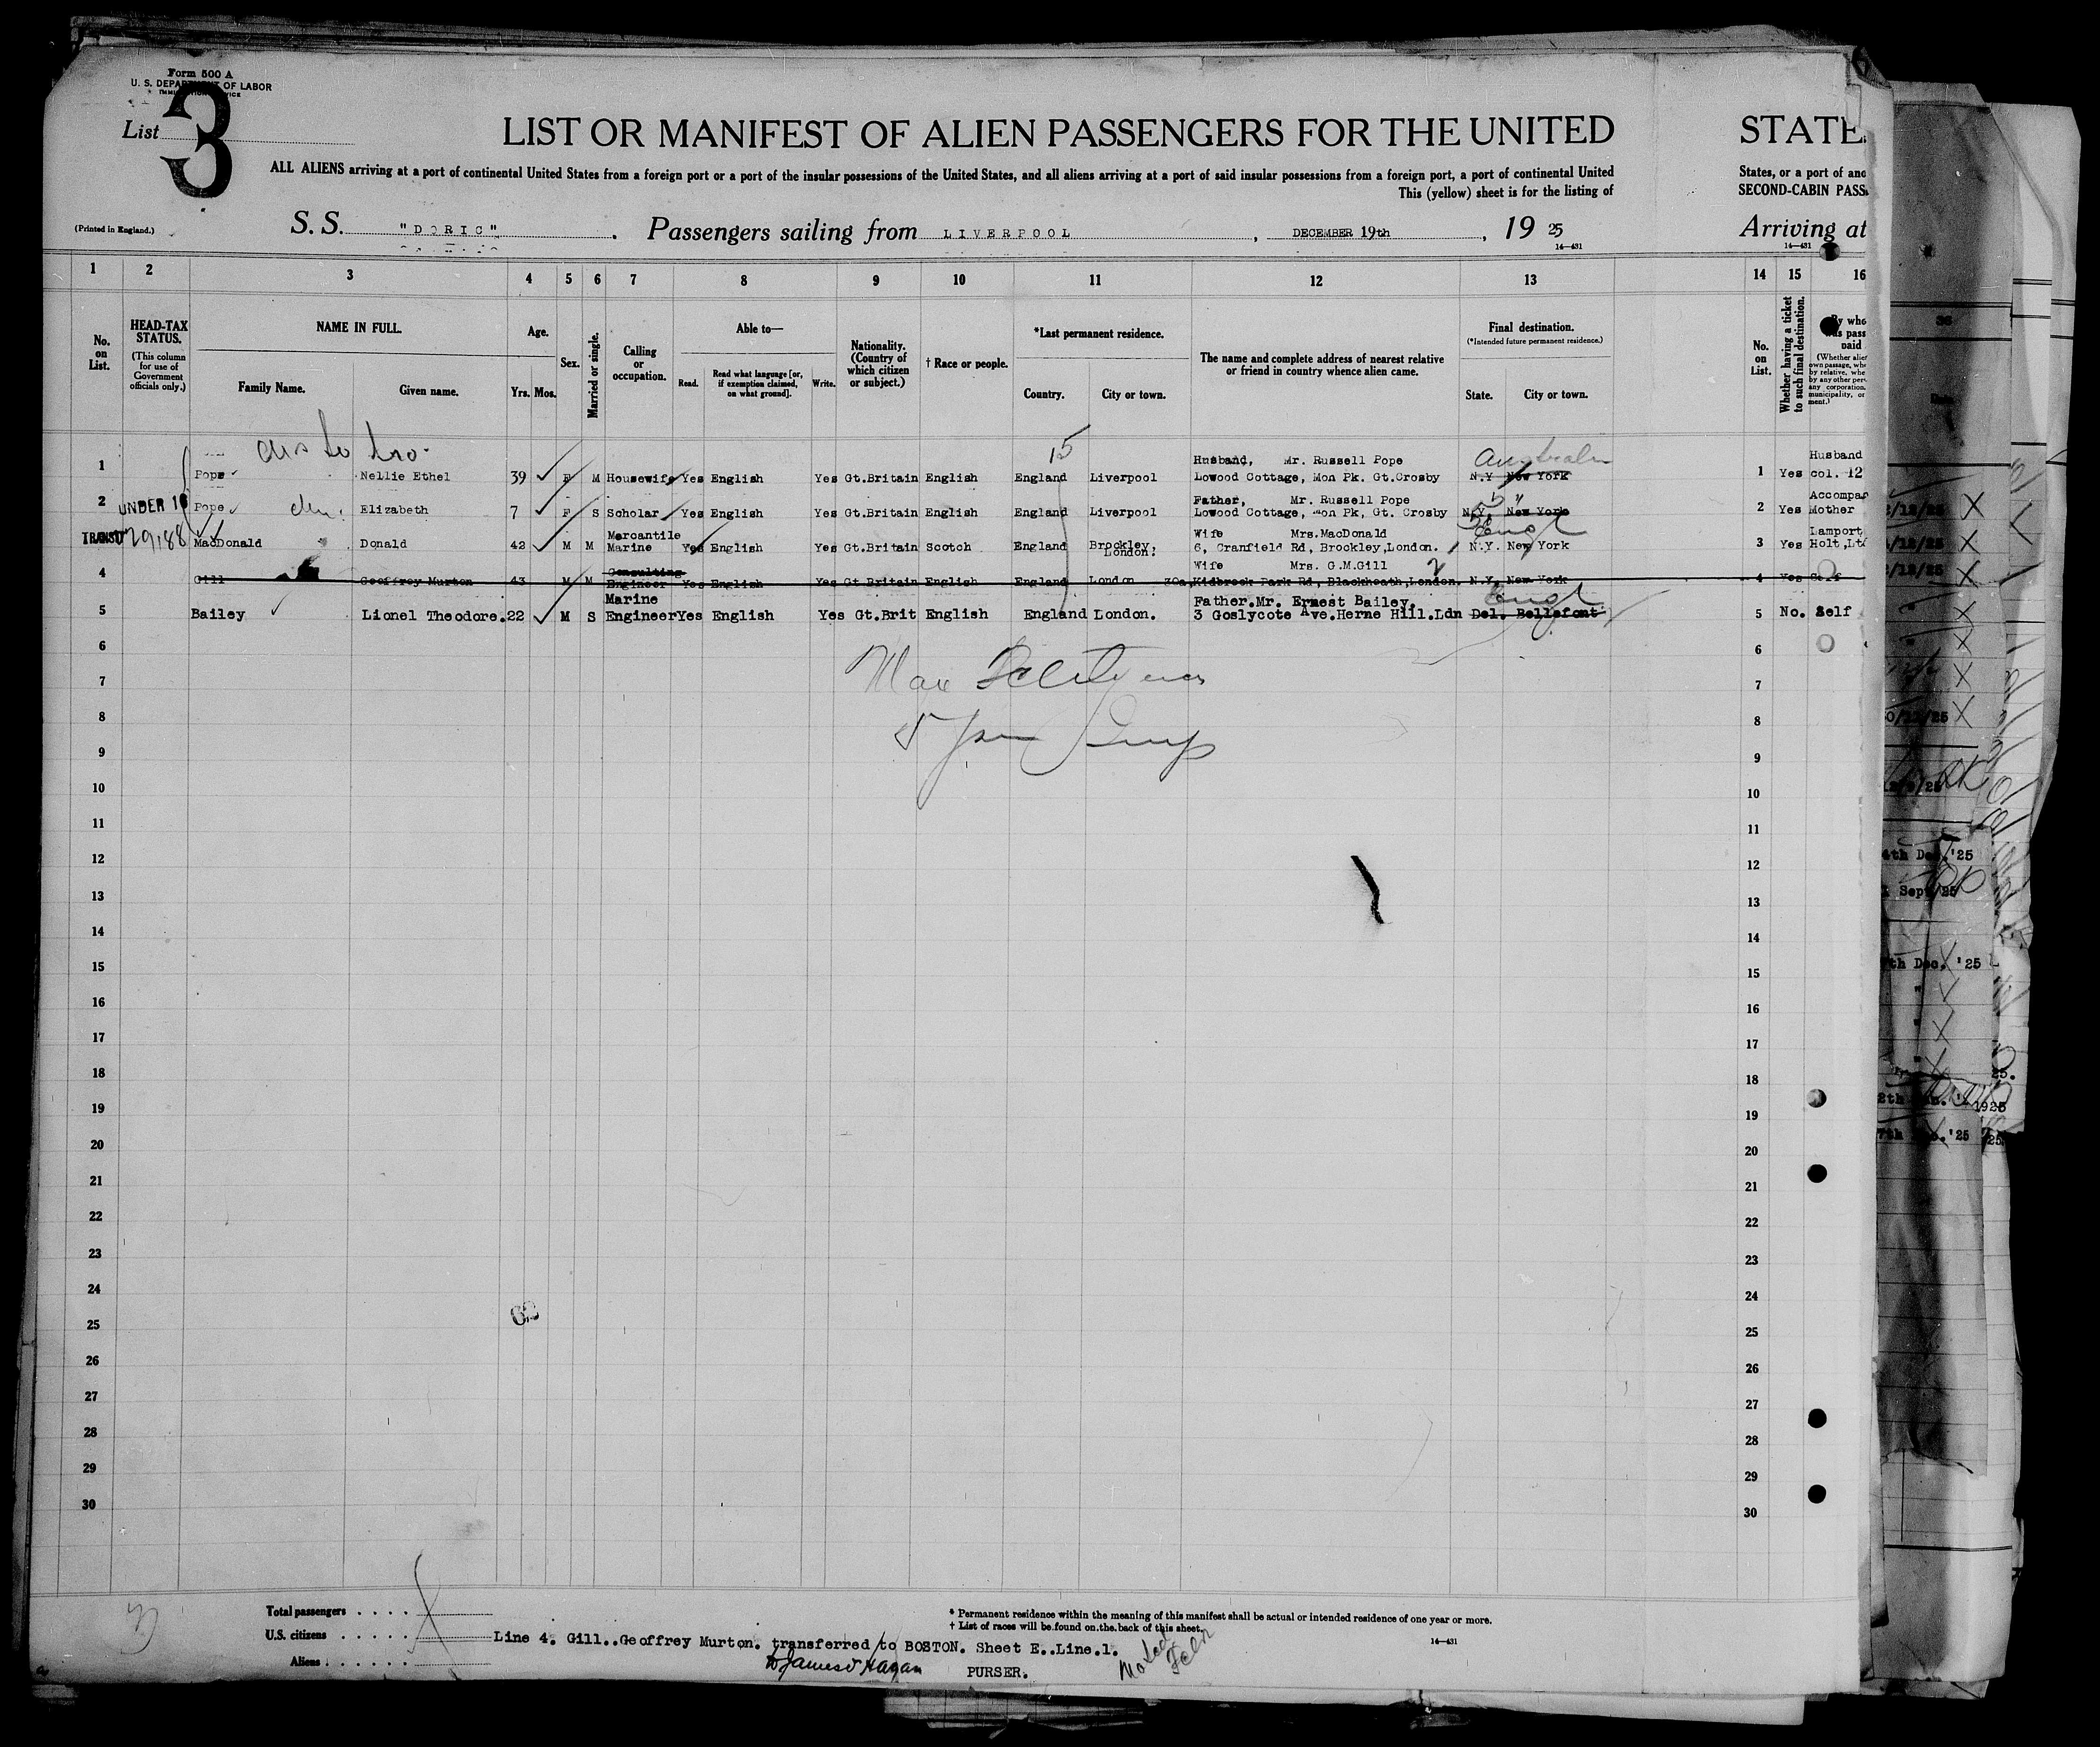 Form 500 A
U. S. DEPARTMENT OF LABOR
IMMIGRATION SERVICE
List 3
LIST OR MANIFEST OF ALIEN PASSENGERS FOR THE UNITED STATE
ALL ALIENS arriving at a port of continental United States from a foreign port or a port of the insular possessions of the United States, and all aliens arriving at a port of said insular possessions from a foreign port, a port of continental United States, or a port of
This (yellow) sheet is for the listing of SECOND-CABIN PASS
(Printed in England.)
S. S. "DORIC" . Passengers sailing from LIVERPOOL , DECEMBER 19th , 19 25 Arriving at
14—431 14—431
1 2 3 4 5 6 7 8 9 10 11 12 13 14 15 16
No. on List.
HEAD-TAX STATUS.
(This column for use of Government officials only.)
NAME IN FULL.
Family Name. Given name.
Age.
Yrs. Mos.
Sex.
Married or single.
Calling or occupation.
Able to—
Read. Read what language [or, if exemption claimed, on what ground]. Write.
Nationality. (Country of which citizen or subject.)
† Race or people.
*Last permanent residence.
Country. City or town.
The name and complete address of nearest relative or friend in country whence alien came.
Final destination.
(*Intended future permanent residence.)
State. City or town.
No. on List.
Whether having a ticket to such final destination.
Australia
Husband, Mr. Russell Pope Husband
1 Pope Nellie Ethel 39 F M Housewife Yes English Yes Gt.Britain English England Liverpool Lowood Cottage, Mon Pk. Gt.Crosby N.Y New York 1 Yes col. 12
Father, Mr. Russell Pope
2 UNDER 16 Pope Elizabeth 7 F S Scholar Yes English Yes Gt.Britain English England Liverpool Lowood Cottage, Mon Pk, Gt. Crosby N.Y. New York 2 Yes Mother
Mercantile Wife Mrs.MacDonald Engl Lamport
3 TRANSIT MacDonald Donald 42 M M Marine Yes English Yes Gt.Britain Scotch England Brockley, London. 6, Cranfield Rd, Brockley,London. N.Y. New York 3 Yes Holt,Ltd
Consulting Wife Mrs. G.M.Gill
4 Gill Geoffrey Murton 43 M M Engineer Yes English Yes Gt.Britain English England London 30a,Kidbrook Park Rd, Blackheath,London. N.Y. New York 4 Yes Self
Marine Father.Mr. Ernest Bailey. Engl
5 Bailey Lionel Theodore. 22 M S Engineer Yes English Yes Gt.Brit English England London. 3 Goslycote Ave.Herne Hill.Ldn Del. Bellefont 5 No. Self
6 6
7 7
8 8
9 9
10 10
11 11
12 12
13 13
14 14
15 15
16 16
17 17
18 18
19 19
20 20
21 21
22 22
23 23
24 24
25 25
26 26
27 27
28 28
29 29
30 30
Total passengers
U.S. citizens
Aliens
* Permanent residence within the meaning of this manifest shall be actual or intended residence of one year or more.
† List of races will be found on the back of this sheet.
14—431
Line 4. Gill..Geoffrey Murton. transferred to BOSTON. Sheet E..Line.1.
PURSER.